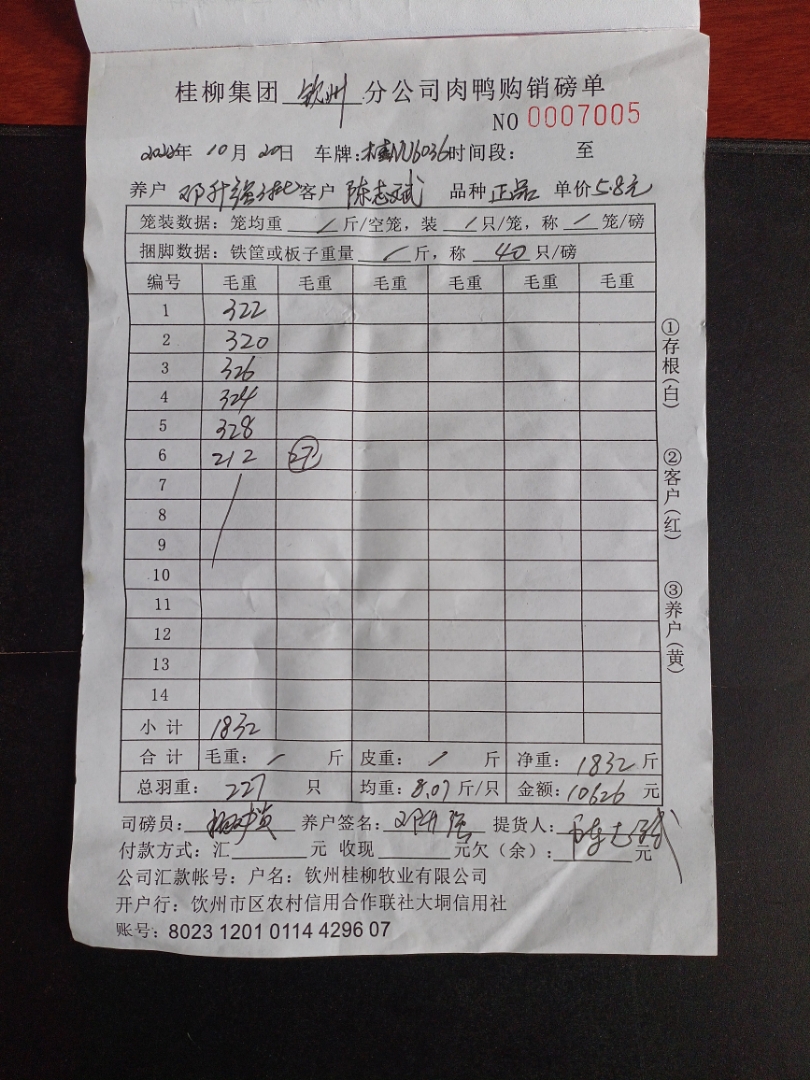 桂柳集团 钦州 分公司肉鸭购销磅单
NO 0007005
2022年 10月 20日 车牌:桂NU6036 时间段: 至
养户 邓升强 客户 陈志斌 品种 正品 单价 5.8元
笼装数据:笼均重 / 斤/空笼,装 / 只/笼,称 / 笼/磅
捆脚数据:铁筐或板子重量 / 斤,称 40 只/磅
编号 毛重 毛重 毛重 毛重 毛重 毛重
1 322
2 320
3 326
4 324
5 328
6 212 27
7
8
9
10
11
12
13
14
小计 1832
合计 毛重: / 斤 皮重: / 斤 净重: 1832 斤
总羽重: 227 只 均重: 8.07 斤/只 金额: 10626 元
司磅员: 养户签名: 邓升强 提货人: 陈志斌
付款方式:汇 元 收现 元欠(余): 元
公司汇款帐号:户名:钦州桂柳牧业有限公司
开户行:钦州市区农村信用合作联社大垌信用社
账号:8023 1201 0114 4296 07
①存根(白)
②客户(红)
③养户(黄)